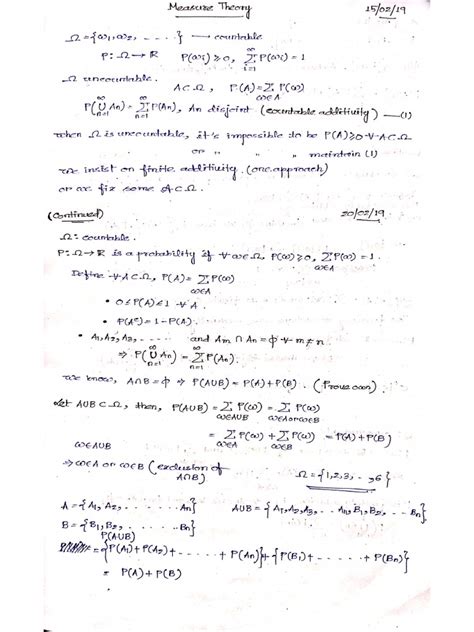 Measure Theory 15/02/19
Ω = {ω₁, ω₂, ......} → countable
P: Ω → ℝ P(ωi) ≥ 0, ∞Σi=1 P(ωi) = 1
Ω uncountable.
A ⊂ Ω, P(A) = Σω∈A P(ω)
P(∞∪n=1 An) = ∞Σn=1 P(An), An disjoint (countable additivity) — (1)
When Ω is uncountable, it's impossible to be P(A) ≥ 0 ∀ A ⊂ Ω
or " " " maintain (1)
We insist on finite additivity. (one approach)
or we fix some A ⊂ Ω.
(Continued) 20/02/19
Ω: countable.
P: Ω → ℝ is a probability if ∀ ω ∈ Ω, P(ω) ≥ 0, Σω∈Ω P(ω) = 1.
Define ∀ A ⊂ Ω, P(A) = Σω∈A P(ω)
• 0 ≤ P(A) ≤ 1 ∀ A
• P(Aᶜ) = 1 - P(A).
• A₁, A₂, A₃, ...... and Am ∩ An = φ ∀ m ≠ n.
⇒ P(∞∪n=1 An) = ∞Σn=1 P(An).
We know, A∩B = φ ⇒ P(A∪B) = P(A) + P(B). (Prove own)
Let A∪B ⊂ Ω, then, P(A∪B) = Σω∈A∪B P(ω) = Σω∈A or ω∈B P(ω)
= Σω∈A P(ω) + Σω∈B P(ω) = P(A) + P(B)
ω∈A∪B
⇒ ω∈A or ω∈B (exclusion of A∩B) Ω = {1,2,3, ..., 6}
A = {A₁, A₂, ........ An} A∪B = {A₁, A₂, A₃, .. An, B₁, B₂, .. Bn}
B = {B₁, B₂, ........ Bn}
P(A∪B)
= {P(A₁) + P(A₂) + ...... + P(An)} + {P(B₁) + ...... + P(Bn)}
= P(A) + P(B)